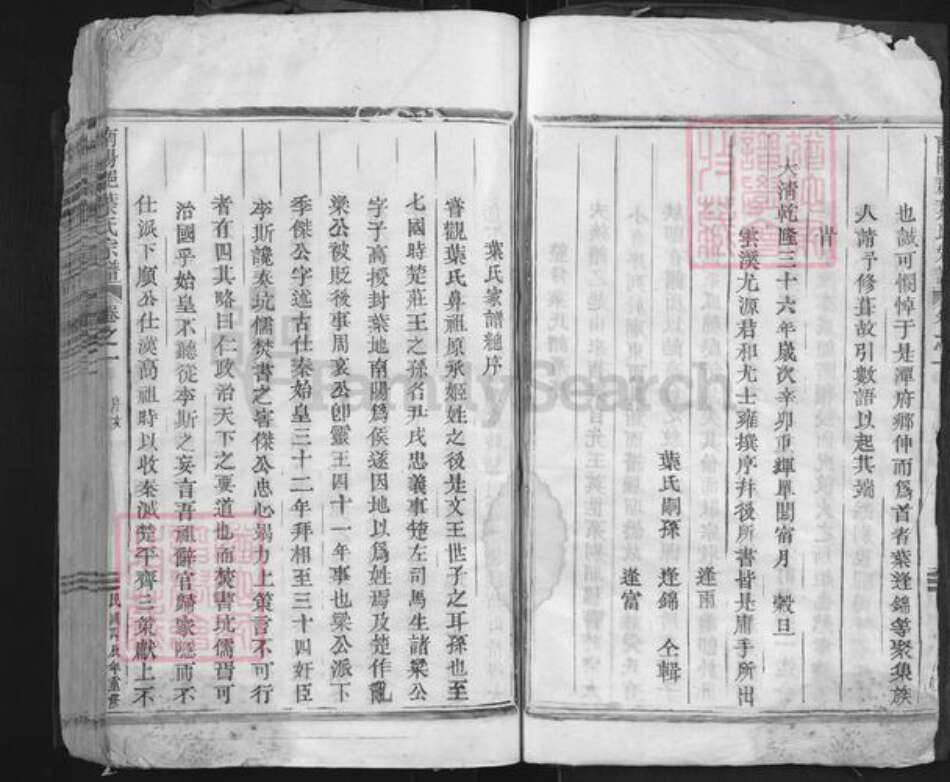 也誠可憫悼于是潭府鄉伸而爲首者葉逢錦等聚集族
人請予修葺故引數語以起其端
旹
大清乾隆三十六年歲次辛卯重輝單閼甯月 穀旦
雲溪尤源君和尤士雍撰序幷後所書皆是庸手所出
逢雨
葉氏嗣孫 逢錦 仝輯
逢富
葉氏家譜總序
嘗觀葉氏鼻祖原承姬姓之後是文王世子之耳孫也至
七國時楚莊王之孫名尹戌忠義事楚左司馬生諸梁公
字子高授封葉地南陽爲侯遂因地以爲姓焉及楚作亂
梁公被貶後事周哀公卽靈王四十一年事也梁公派下
季傑公字述古仕秦始皇三十二年拜相至三十四奸臣
李斯讒秦坑儒焚書之害傑公忠心竭力上策言不可行
者有四其略曰仁政治天下之要道也而焚書坑儒豈可
治國乎始皇不聽從李斯之妄言吾祖辭官歸家隱而不
仕派下願公仕漢高祖時以收秦滅楚平齊三策獻上不
南陽邑葉氏宗譜 卷之一
FamilySearch